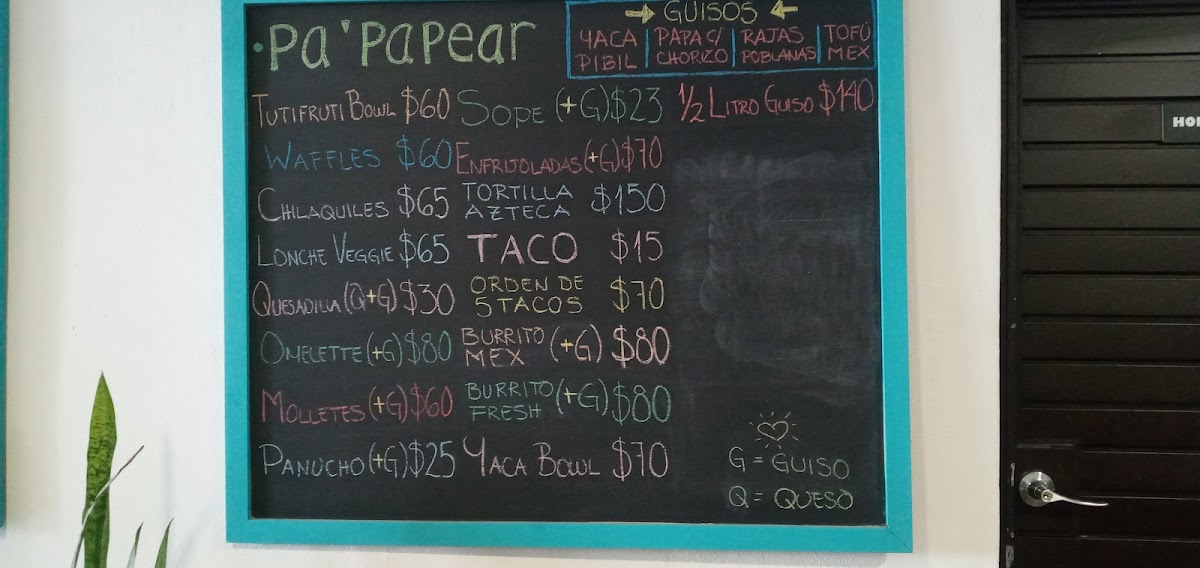 ·Pa'Papear
→ GUISOS ←
YACA PIBIL | PAPA C/ CHORIZO | RAJAS POBLANAS | TOFÚ MEX
TUTIFRUTI BOWL $60
WAFFLES $60
CHILAQUILES $65
LONCHE VEGGIE $65
QUESADILLA (Q+G) $30
OMELETTE (+G) $80
MOLLETES (+G) $60
PANUCHO (+G) $25
SOPE (+G) $23
ENFRIJOLADAS (+G) $70
TORTILLA AZTECA $150
TACO $15
ORDEN DE 5 TACOS $70
BURRITO MEX (+G) $80
BURRITO FRESH (+G) $80
YACA BOWL $70
1/2 LITRO GUISO $140
G = GUISO
Q = QUESO